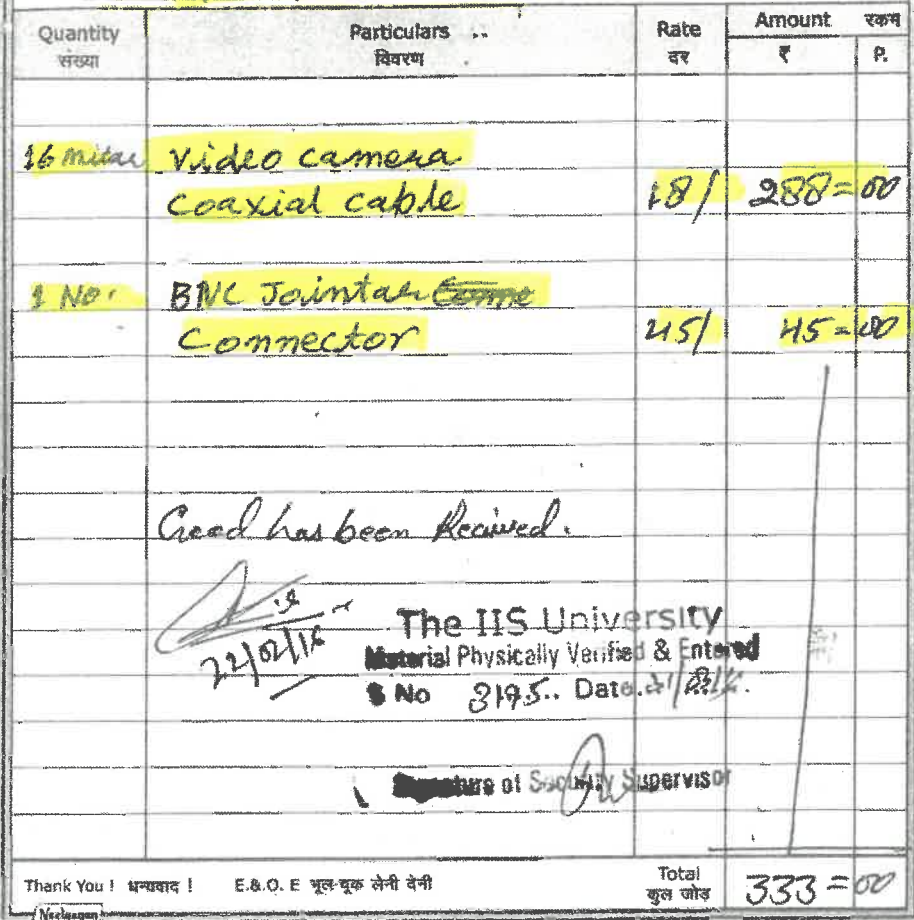 Quantity Particulars Rate Amount रकम
संख्या विवरण दर ₹ P.
16 Mitar Video camera
Coaxial cable 18/ 288=00
1 No. BNC Jointar
Connector 45/ 45=00
Good has been Recived.
22/02/16
The IIS University
Material Physically Verified & Entered
S No 3195.. Date.
Signature of Security Supervisor
Thank You ! धन्यवाद ! E.&.O. E भूल-चूक लेनी देनी Total
कुल जोड़ 333=00
Neelgagan